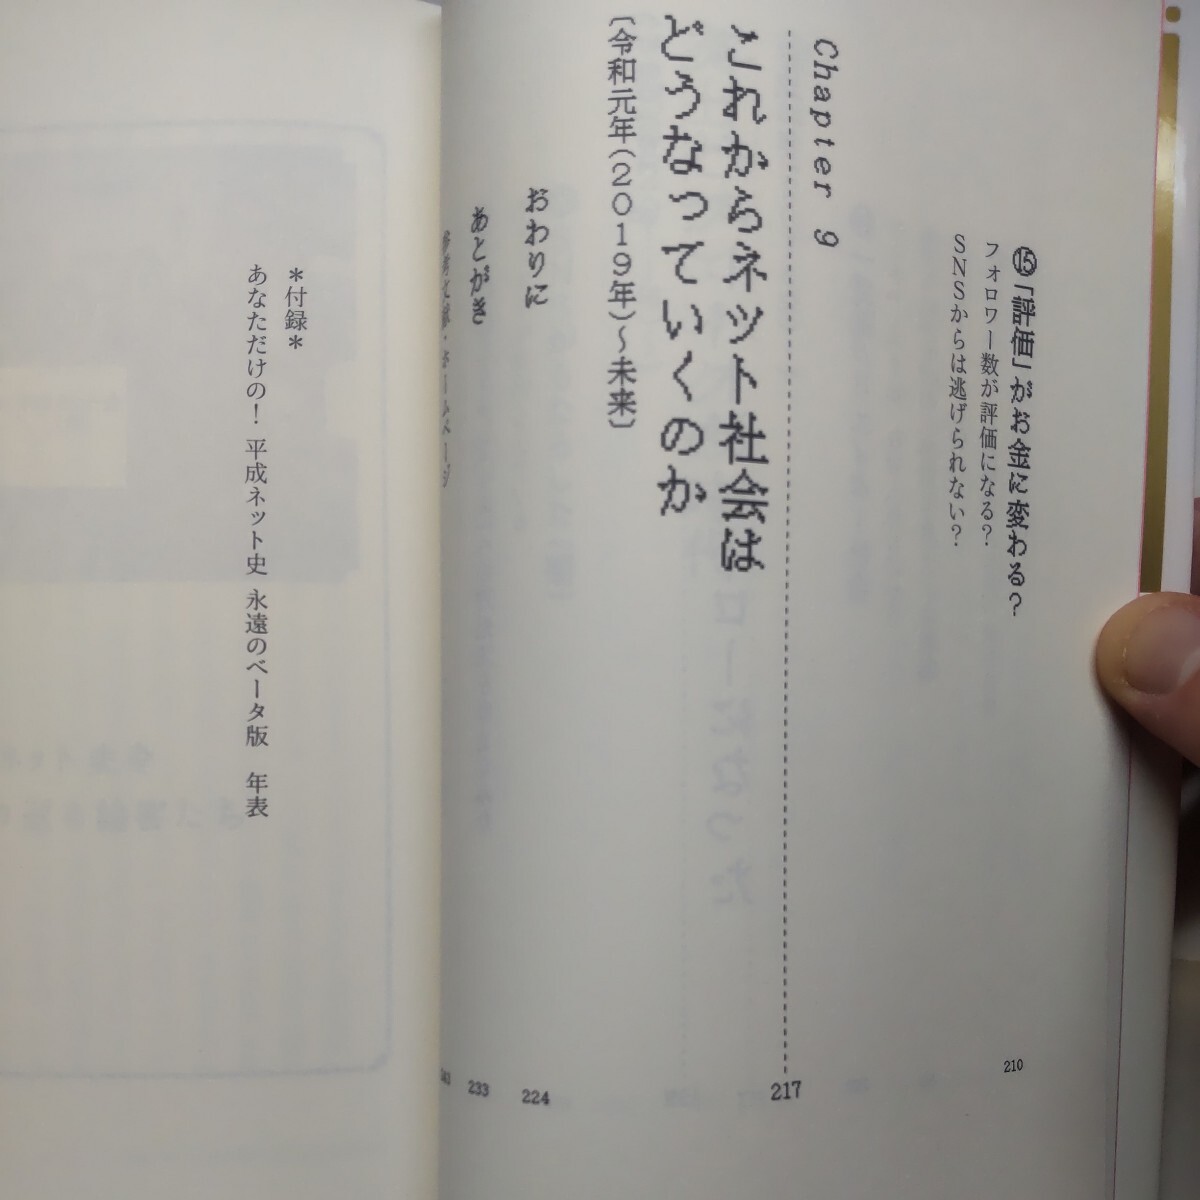 ⑮「評価」がお金に変わる？
210
フォロワー数が評価になる？
SNSからは逃げられない？
Chapter 9
217
これからネット社会は
どうなっていくのか
〔令和元年(2019年)～未来〕
おわりに
224
あとがき
233
＊付録＊
あなただけの！ 平成ネット史 永遠のベータ版 年表